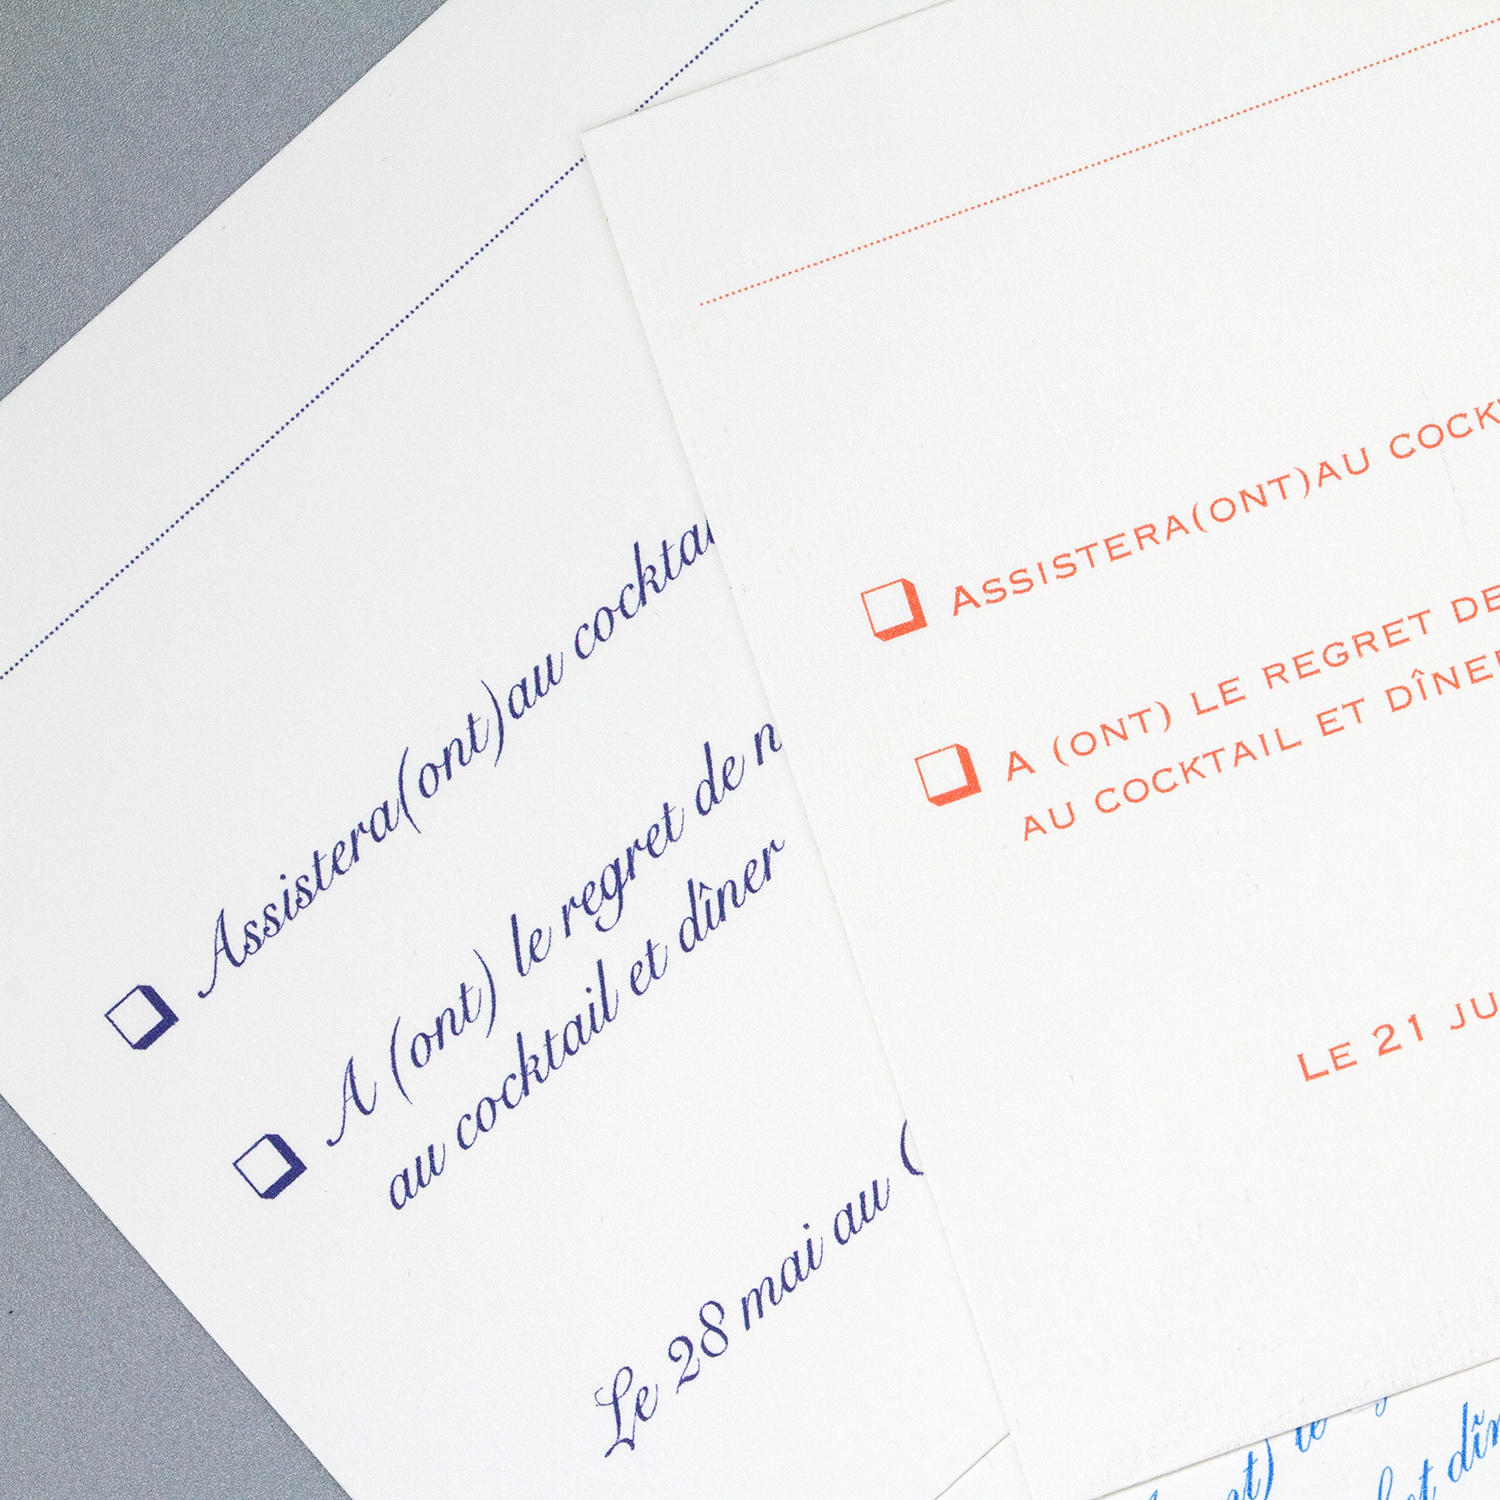 Assistera(ont)au
A (ont) le regret de
au cocktail et dîner
Le 28 mai au
ASSISTERA(ONT)AU
A (ONT) LE REGRET DE
AU COCKTAIL ET DÎNER
LE 21